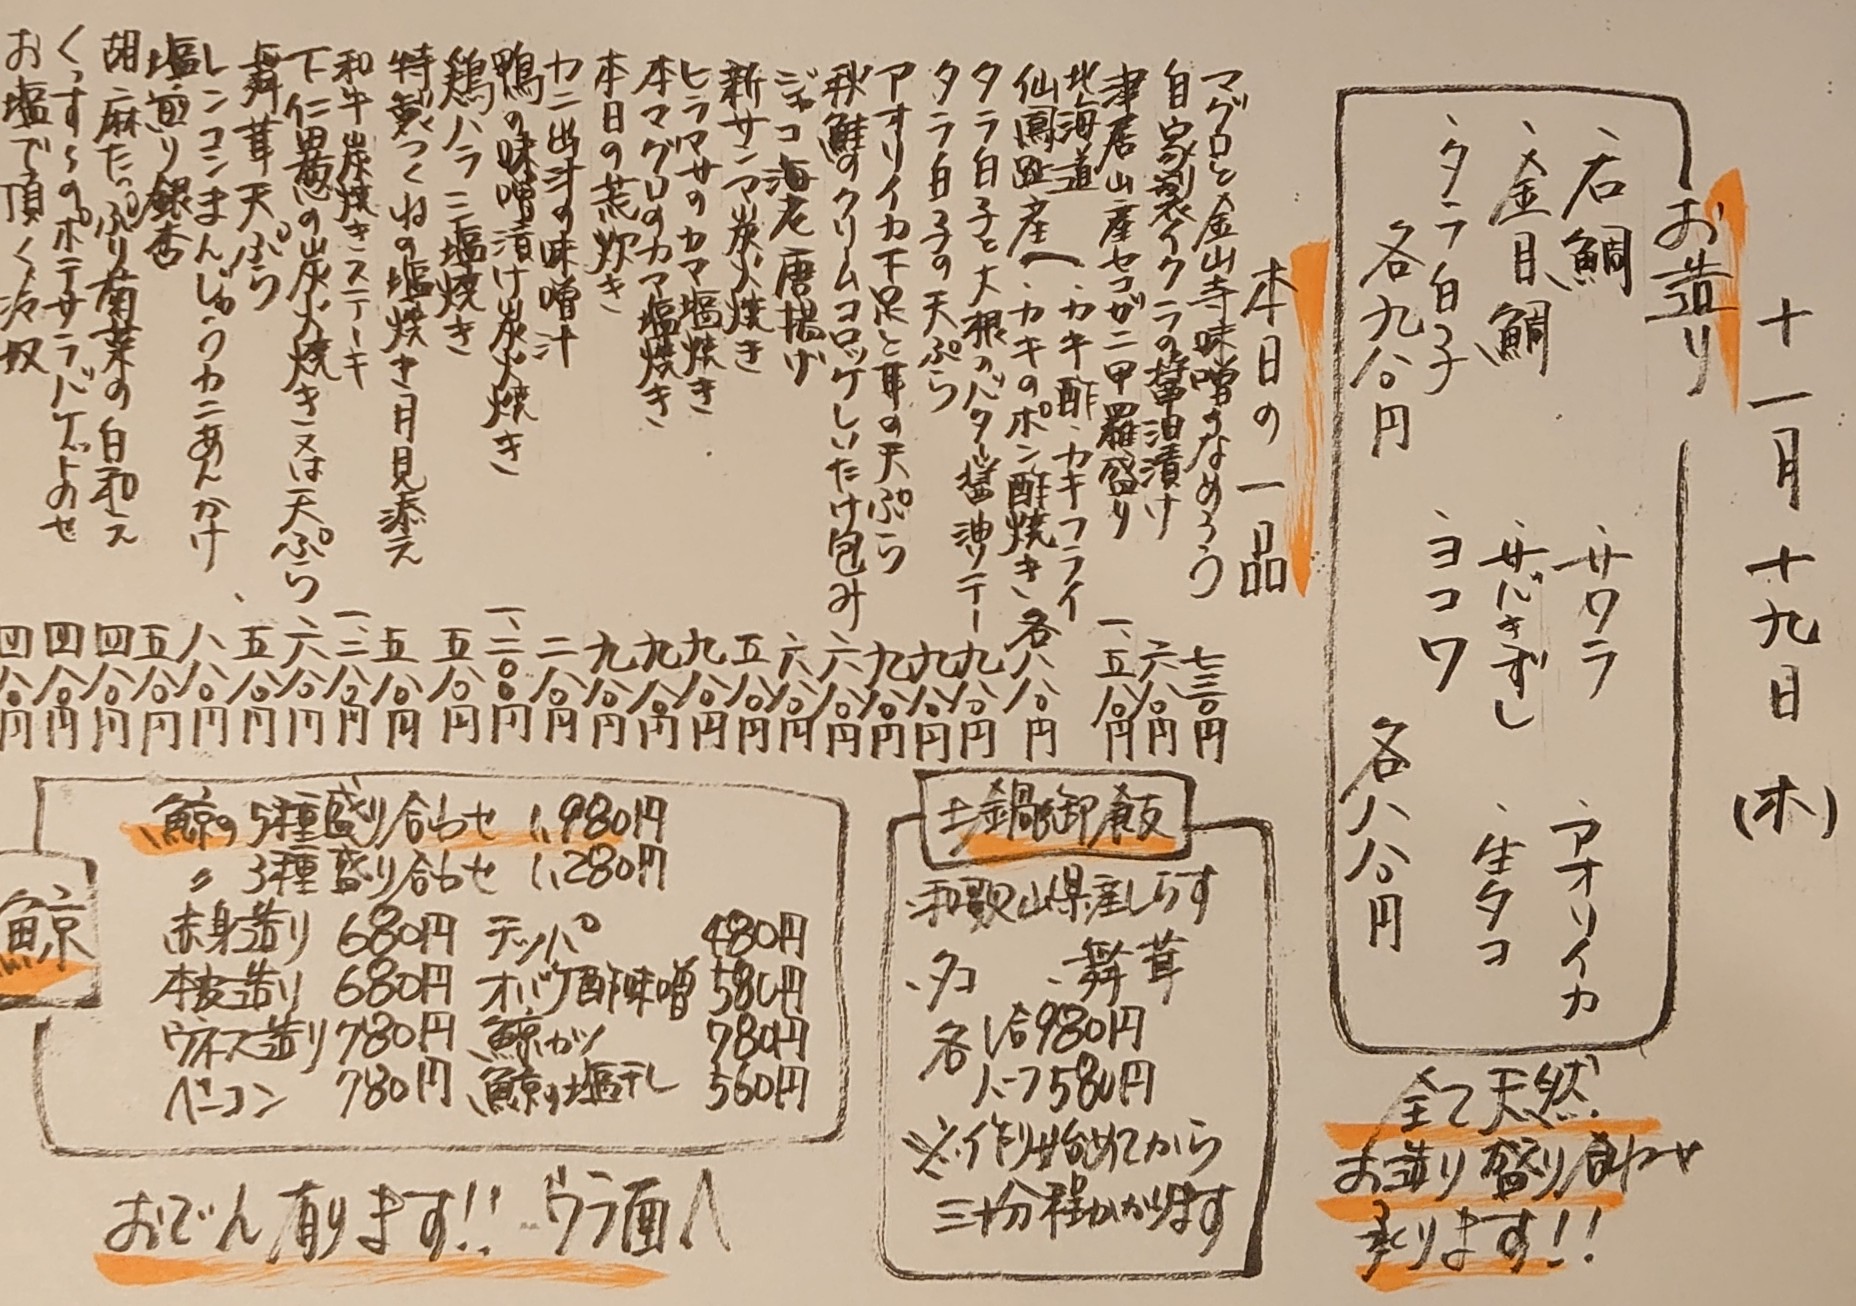 十一月十九日(木)
お造り
・石鯛
・金目鯛
・タラ白子
各九八〇円
・サワラ
・サバきずし
・ヨコワ
・アオリイカ
・生タコ
各八八〇円
全て天然
お造り盛り合わせ
承ります!!
本日の一品
マグロと金山寺味噌のなめろう 七三〇円
自家製イクラの醤油漬け 六八〇円
津居山産セコガニ甲羅盛り 一、五八〇円
北海道
仙鳳趾産へ ・カキ酢・カキフライ
・カキのポン酢焼き 各八八〇円
タラ白子と大根のバター醤油ソテー 九八〇円
タラ白子の天ぷら 九八〇円
アオリイカ下足と耳の天ぷら 九八〇円
秋鮭のクリームコロッケしいたけ包み 六八〇円
ジャコ海老唐揚げ 六八〇円
新サンマ炭火焼き 五八〇円
ヒラマサのカマ塩焼き 九八〇円
本マグロのカマ塩焼き 九八〇円
本日の荒炊き 九八〇円
カニ出汁の味噌汁 二八〇円
鴨の味噌漬け炭火焼き 一、二〇〇円
鶏ハラミ塩焼き 五八〇円
特製つくねの塩焼き月見添え 五八〇円
和牛炭焼きステーキ 一、三八〇円
下仁田葱の炭火焼き又は天ぷら 六八〇円
舞茸天ぷら 五八〇円
レンコンまんじゅうカニあんかけ 八八〇円
塩煎り銀杏 五八〇円
胡麻たっぷり菊菜の白和え 四八〇円
くっすゝのポテサラバゲットのせ 四八〇円
お塩で頂く冷奴 四八〇円
土鍋御飯
・和歌山県産しらす
・タコ ・舞茸
各1合980円
ハーフ580円
※作り始めてから
三十分程かかります
鯨
鯨の5種盛り合わせ 1,980円
〃 3種盛り合わせ 1,280円
赤身造り 680円 テッパ 480円
本皮造り 680円 オバケ酢味噌 580円
ウネス造り 780円 鯨カツ 780円
ベーコン 780円 鯨の塩干し 560円
おでん有ります!! ウラ面へ